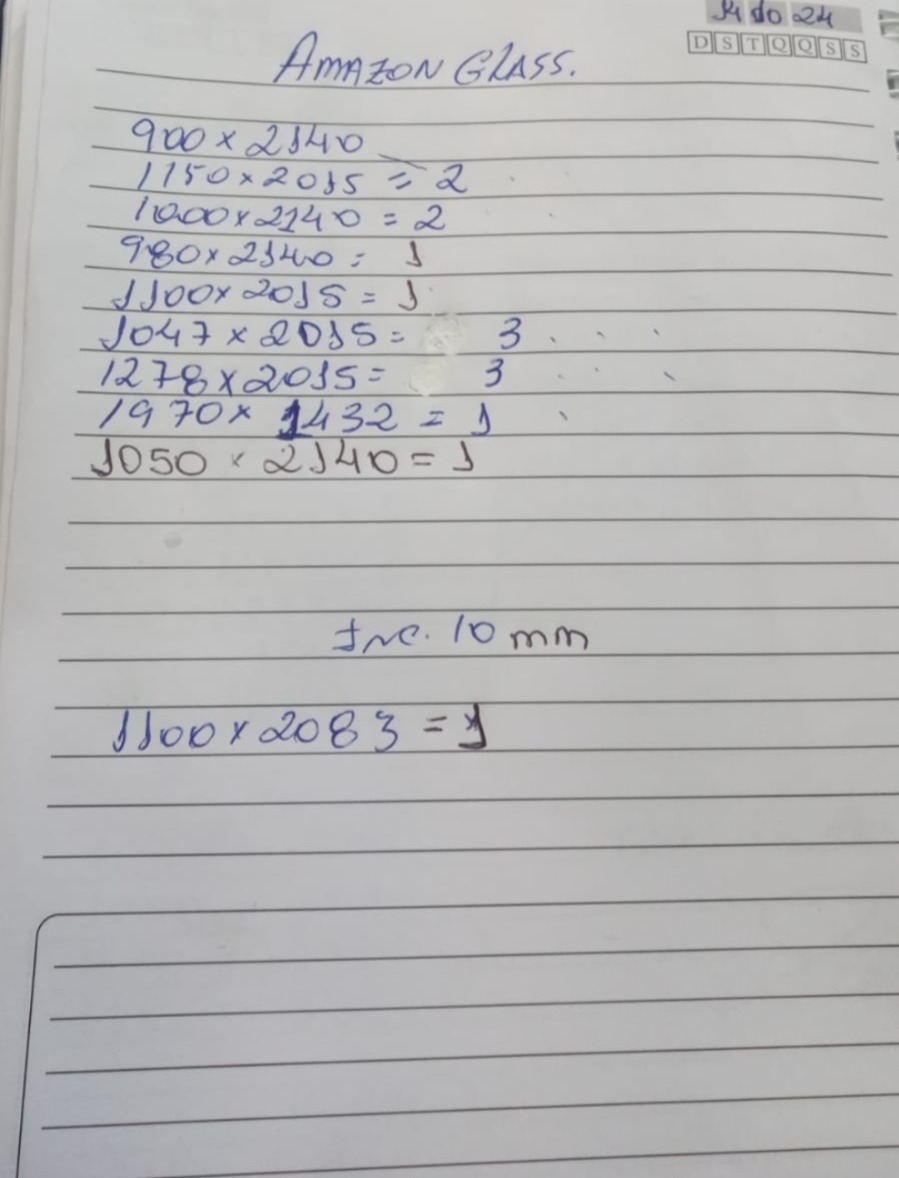 14 10 24
D S T Q Q S S
AMAZON GLASS.
900 x 2140
1150 x 2015 = 2
1000 x 2140 = 2
980 x 2140 = 1
1100 x 2015 = 1
1047 x 2015 = 3
1278 x 2015 = 3
1970 x 1432 = 1
1050 x 2140 = 1
Inc. 10 mm
1100 x 2083 = 1